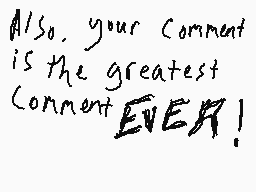 Also, your comment
is the greatest
comment EVER!